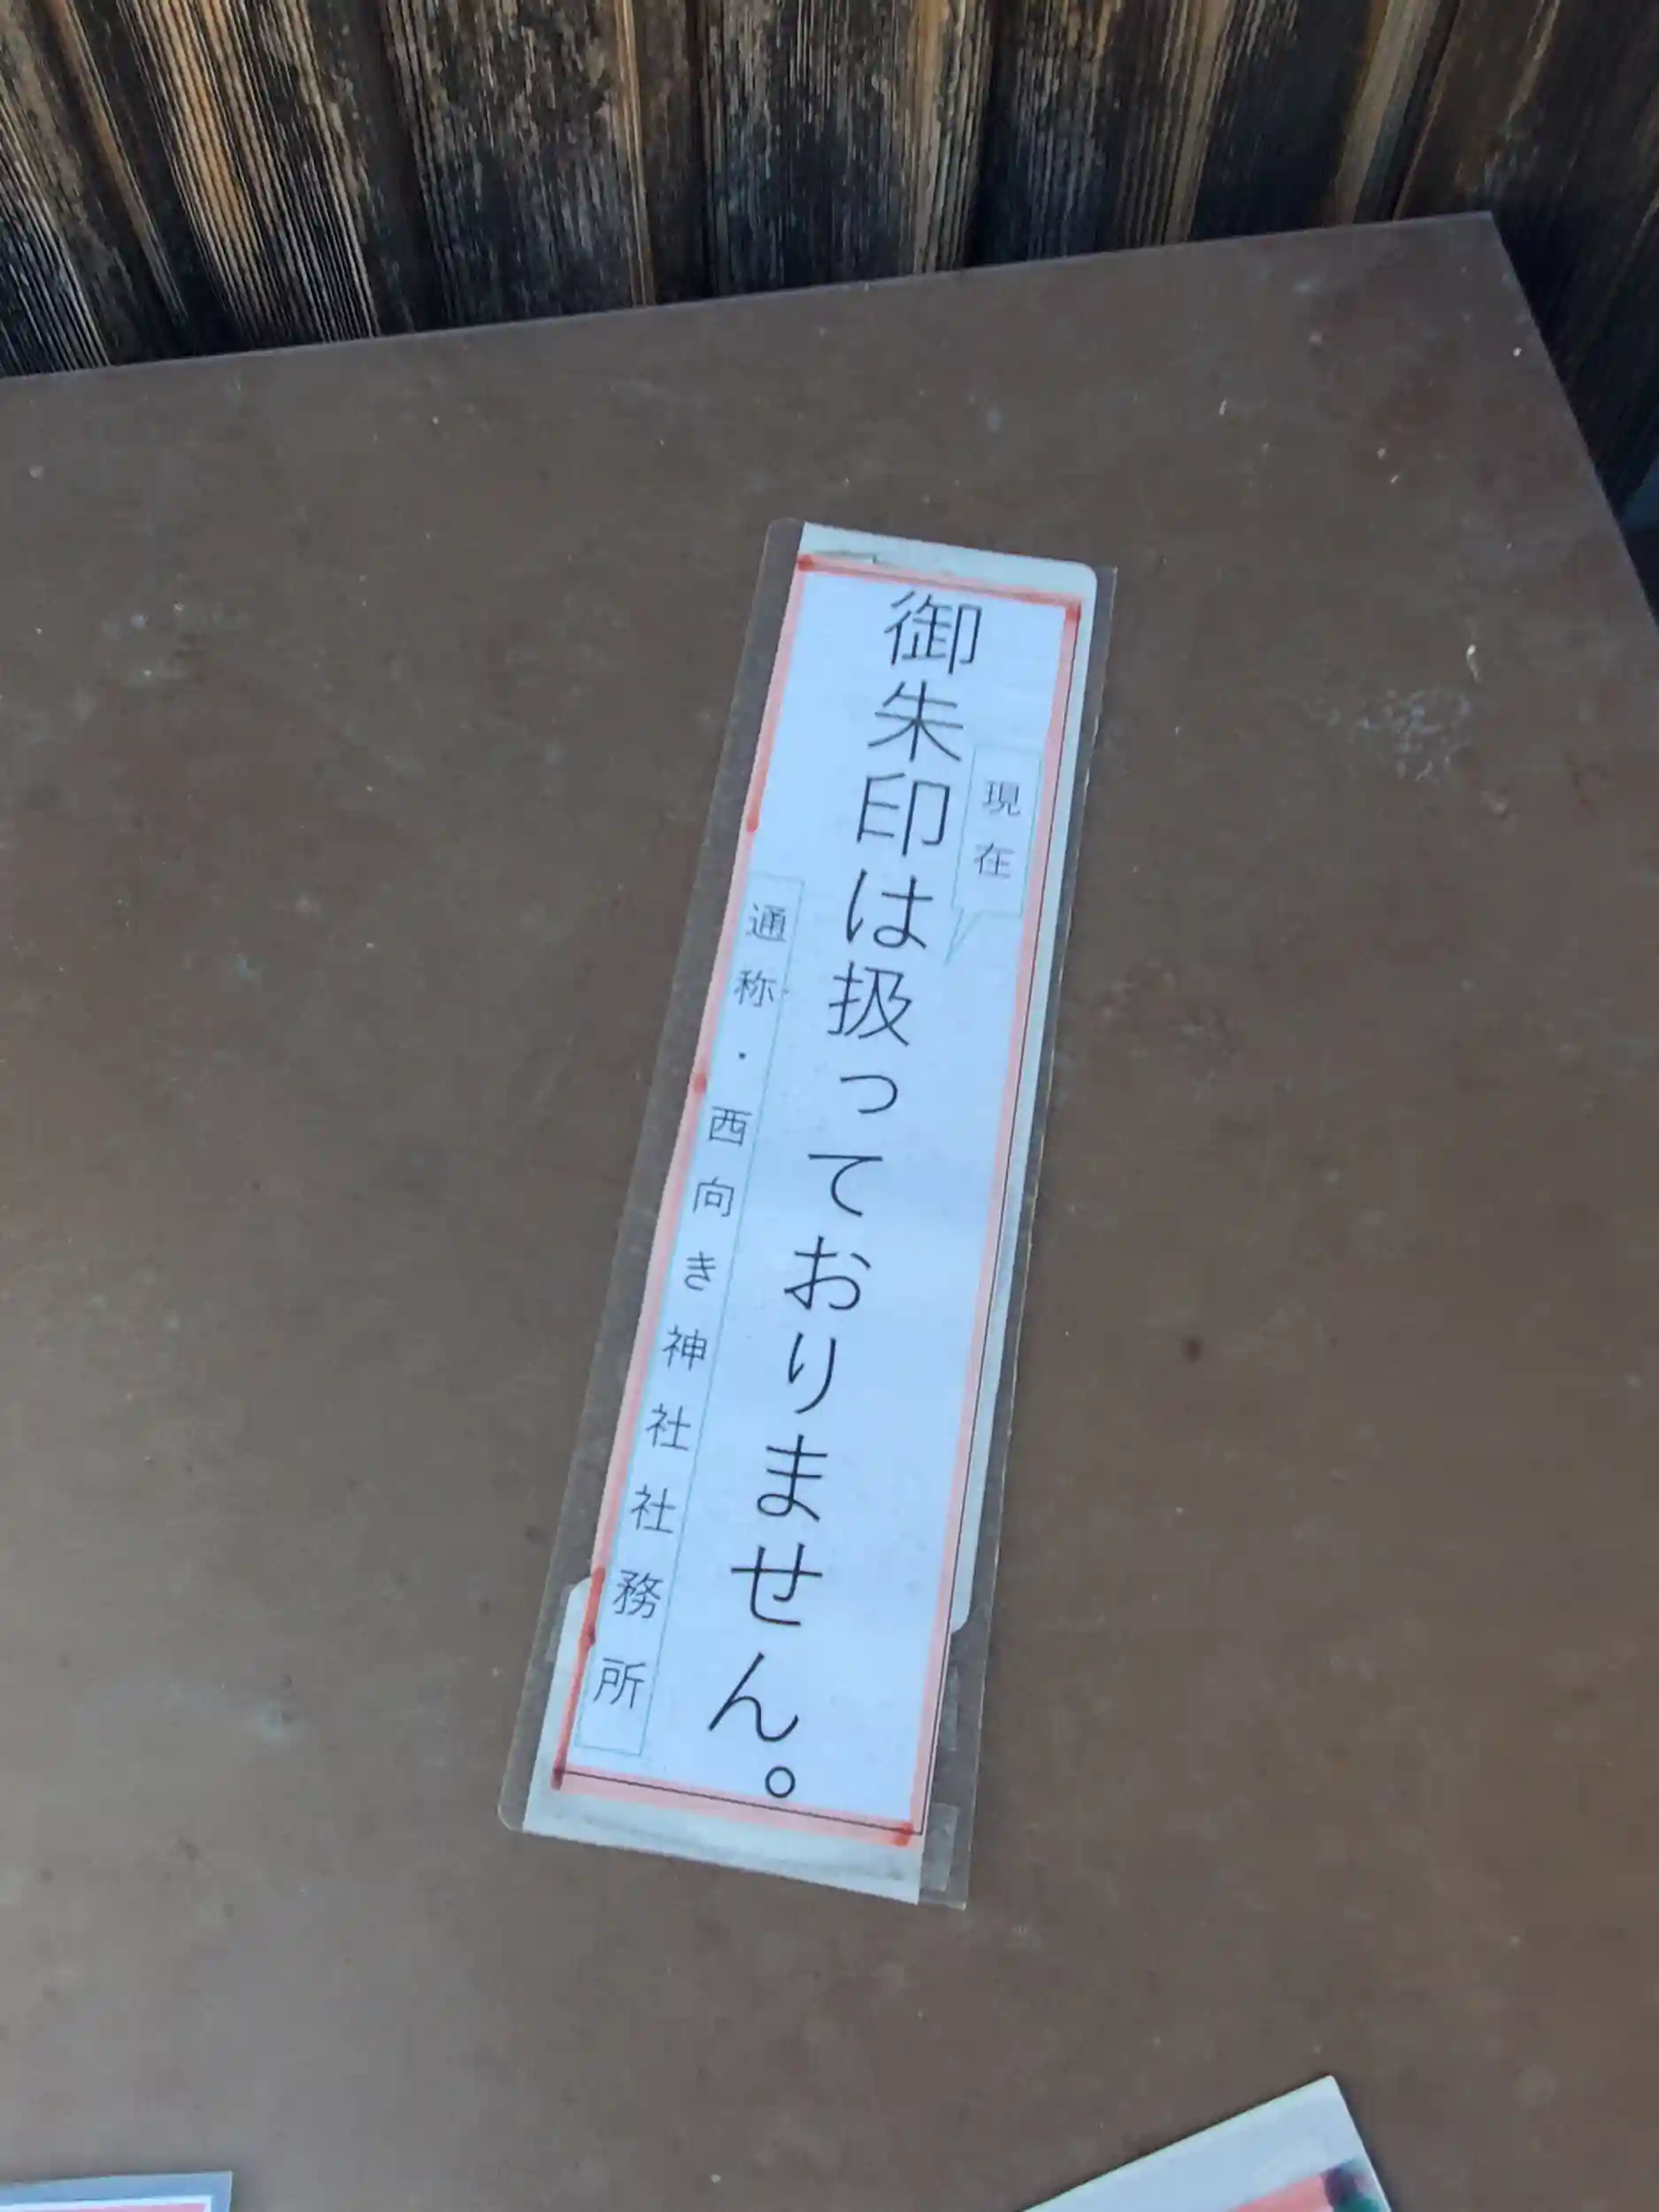 現在
御朱印は扱っておりません。
通称・西向き神社社務所